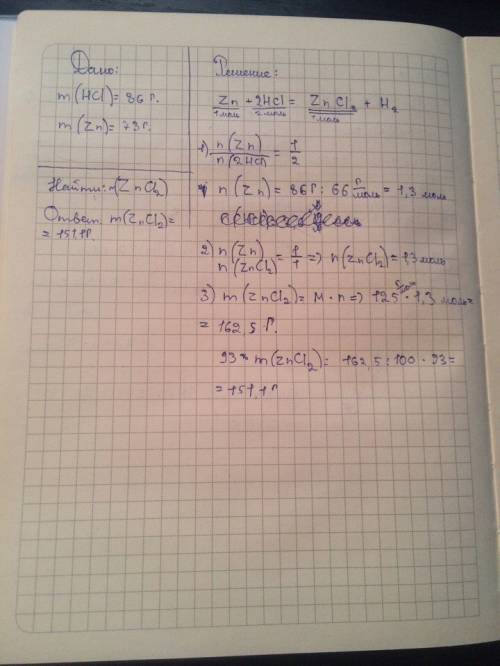 Дано:
m(HCl)=86 г.
m(Zn)=73г.
Найти: (ZnCl₂)
Ответ: m(ZnCl₂)=
=151,1г.
Решение:
Zn + 2HCl = ZnCl₂ + H₂
1моль 2моль 1моль
1) n(Zn)/n(2HCl) = 1/2
n(Zn) = 86г : 66 г/моль = 1,3 моль
2) n(Zn)/n(ZnCl₂) = 1/1 => n(ZnCl₂) = 1,3 моль
3) m(ZnCl₂) = M · n => 125 · 1,3 моль=
= 162,5 г.
93% m(ZnCl₂) = 162,5 : 100 · 93 =
= 151,1 г